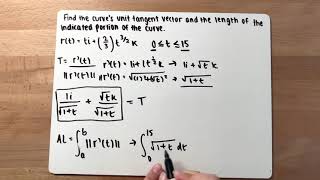 Find the curve's unit tangent vector and the length of the
indicated portion of the curve.
r(t) = ti + (2/3) t^3/2 k    0 ≤ t ≤ 15
T = r'(t) / ||r'(t)||    r'(t) = 1i + 1t^1/2 k → 1i + √t k
||r'(t)|| = √(1)²+(√t)² → √1+t
1i/√1+t + √t k/√1+t = T
AL = ∫ₐᵇ ||r'(t)|| → ∫₀¹⁵ √1+t dt